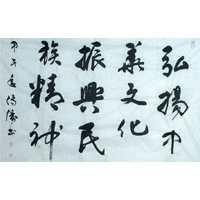 弘揚中
華文化
振興民
族精神